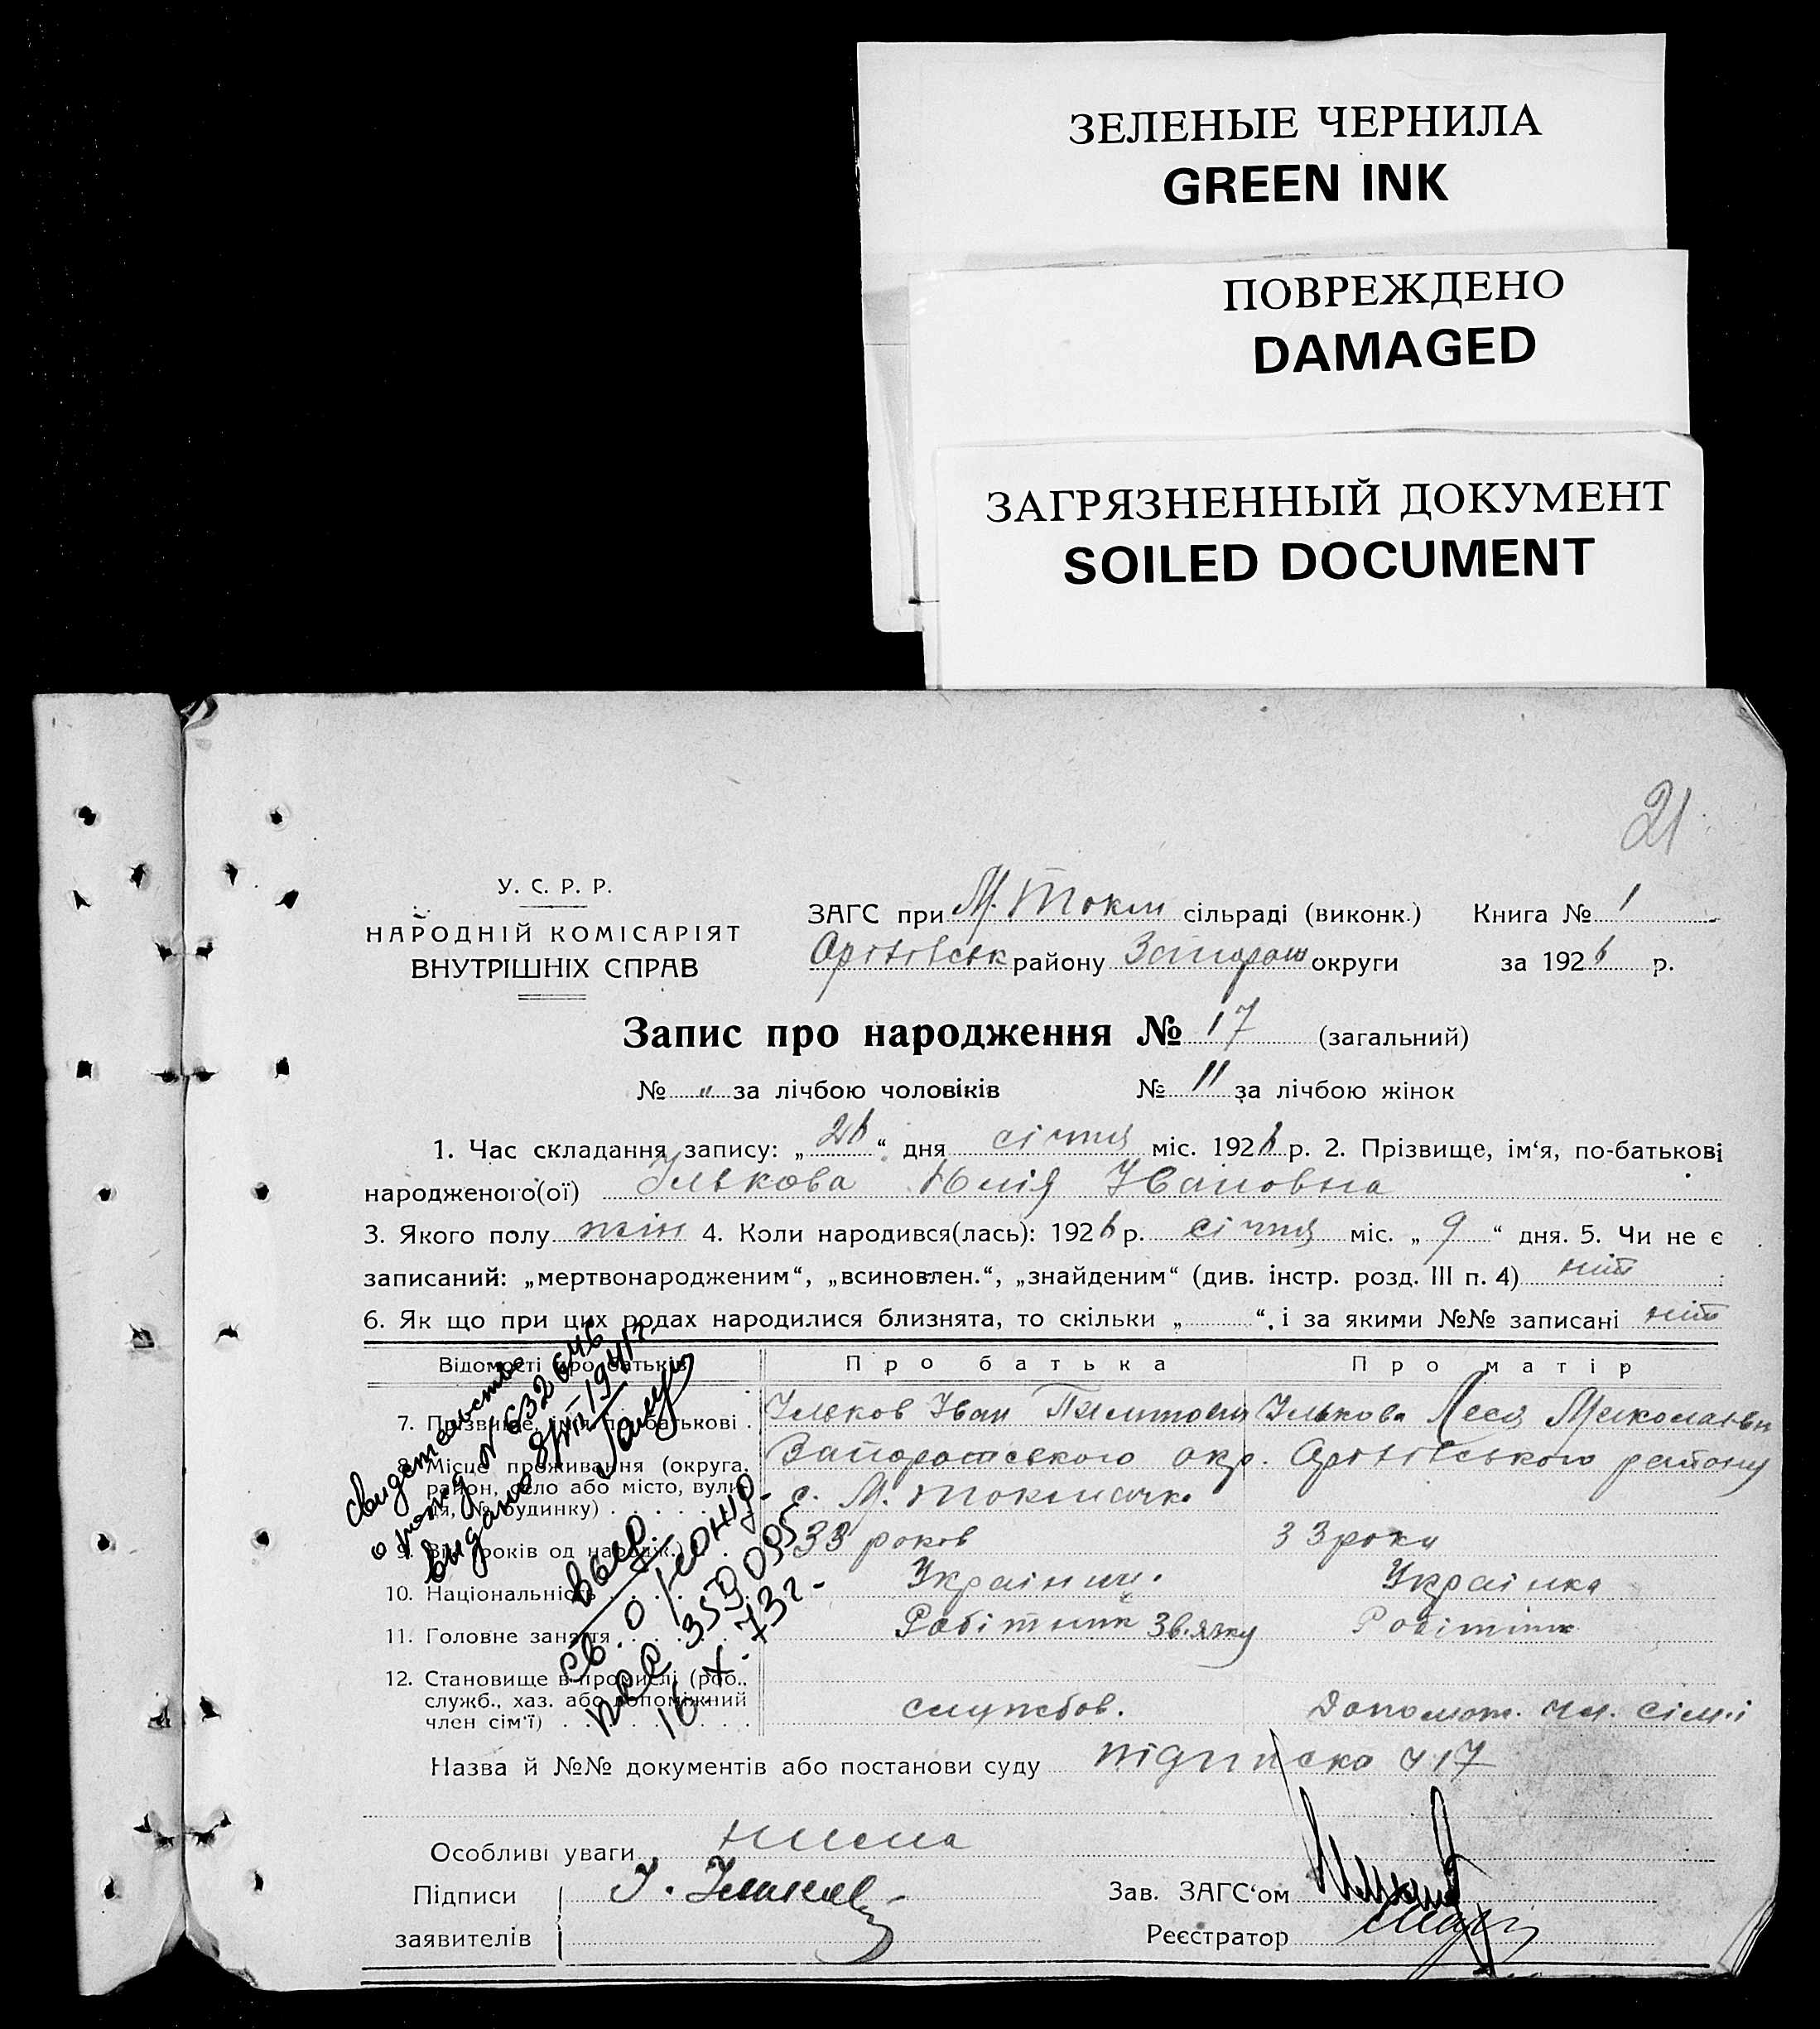 ЗЕЛЕНЫЕ ЧЕРНИЛА
GREEN INK
ПОВРЕЖДЕНО
DAMAGED
ЗАГРЯЗНЕННЫЙ ДОКУМЕНТ
SOILED DOCUMENT
21
У. С. Р. Р.
НАРОДНІЙ КОМІСАРІЯТ
ВНУТРІШНІХ СПРАВ
ЗАГС при М. Токм сільраді (виконк.) Книга № 1
району Запорош округи за 1926 р.
Запис про народження № 17 (загальний)
№ „ за лічбою чоловіків № 11 за лічбою жінок
1. Час складання запису: „26“ дня січня міс. 1926 р. 2. Прізвище, ім‘я, по-батькові
народженого(ої) Ількова Юлія Івановна
3. Якого полу жін 4. Коли народився(лась): 1926 р. січня міс. „9“ дня. 5. Чи не є
записаний: „мертвонародженим“, „всиновлен.“, „знайденим“ (див. інстр. розд. III п. 4) ніт
6. Як що при цих родах народилися близнята, то скільки „ “, і за якими №№ записані ніт
Відомості про батьків Про батька Про матір
7. Прізвище, ім'я по-батькові Ільков Іван Ількова Леся Миколаївн
8. Місце проживання (округа, район, село або місто, вулиця, № будинку) Запорошського окр. району
с. М. Токмачка
9. Вік (років од народж.) 33 років 33 роки
10. Національність Українец. Українка
11. Головне заняття Робітник Зв'язку Робітник
12. Становище в промислі (роб., служб., хаз. або допоміжний член сім'ї) службов. Допомож. чл. сімї
Назва й №№ документів або постанови суду підписка ч 17
Особливі уваги нима
Підписи І. Ільков Зав. ЗАГС‘ом
заявителів Реєстратор
свидетельство
о рожд № 632646
видано 1941 г.
выд.
св. о рожд.
359035
16. X. 73 г.